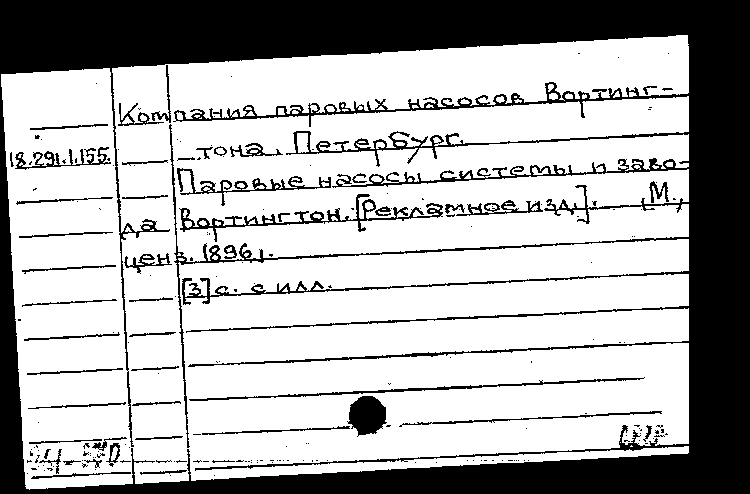 Компания паровых насосов Вортинг-
18.291.1.155. тона. Петербург.
Паровые насосы системы и заво-
да Вортингтон. [Рекламное изд.]. [М.,
ценз. 1896].
[3] с. с илл.